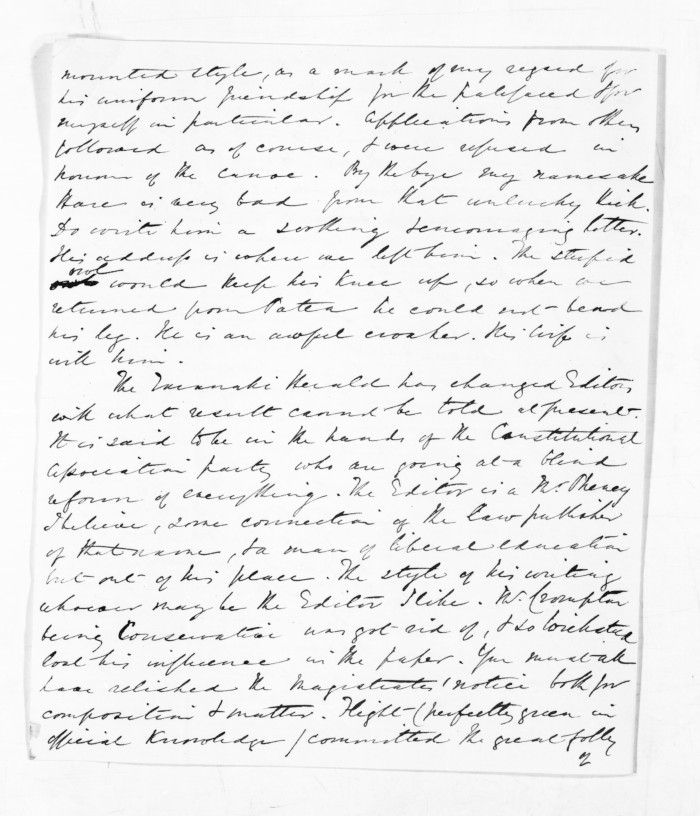 mounted style, as a mark of my regard for
his uniform friendship for the palefaced & for
myself in particular. Applications from others
followed as of course, & were refused in
honour of the canoe. By the bye my namesake
Hare is very bad from that unlucky kick.
Do write him a soothing & encouraging letter.
His address is where we left him. The stupid
owl would keep his knee up, so when we
returned from Patea he could not bend
his leg. He is an awful croaker. His wife is
with him.
The Taranaki Herald has changed Editors
with what result cannot be told at present.
It is said to be in the hands of the Constitutional
Association party who are going at a blind
reform of everything. The Editor is a Mr. Pheney
I believe, some connection of the Law publisher
of that name, & a man of liberal education
but out of his place. The style of his writing
whoever may be the Editor I like. Mr. Crompton
being Conservative was got rid of, & so Wicksteed
lost his influence in the paper. You must all
have relished the Magistrates' notice both for
composition & matter. Flight (perfectly green in
official knowledge) committed the great folly
of